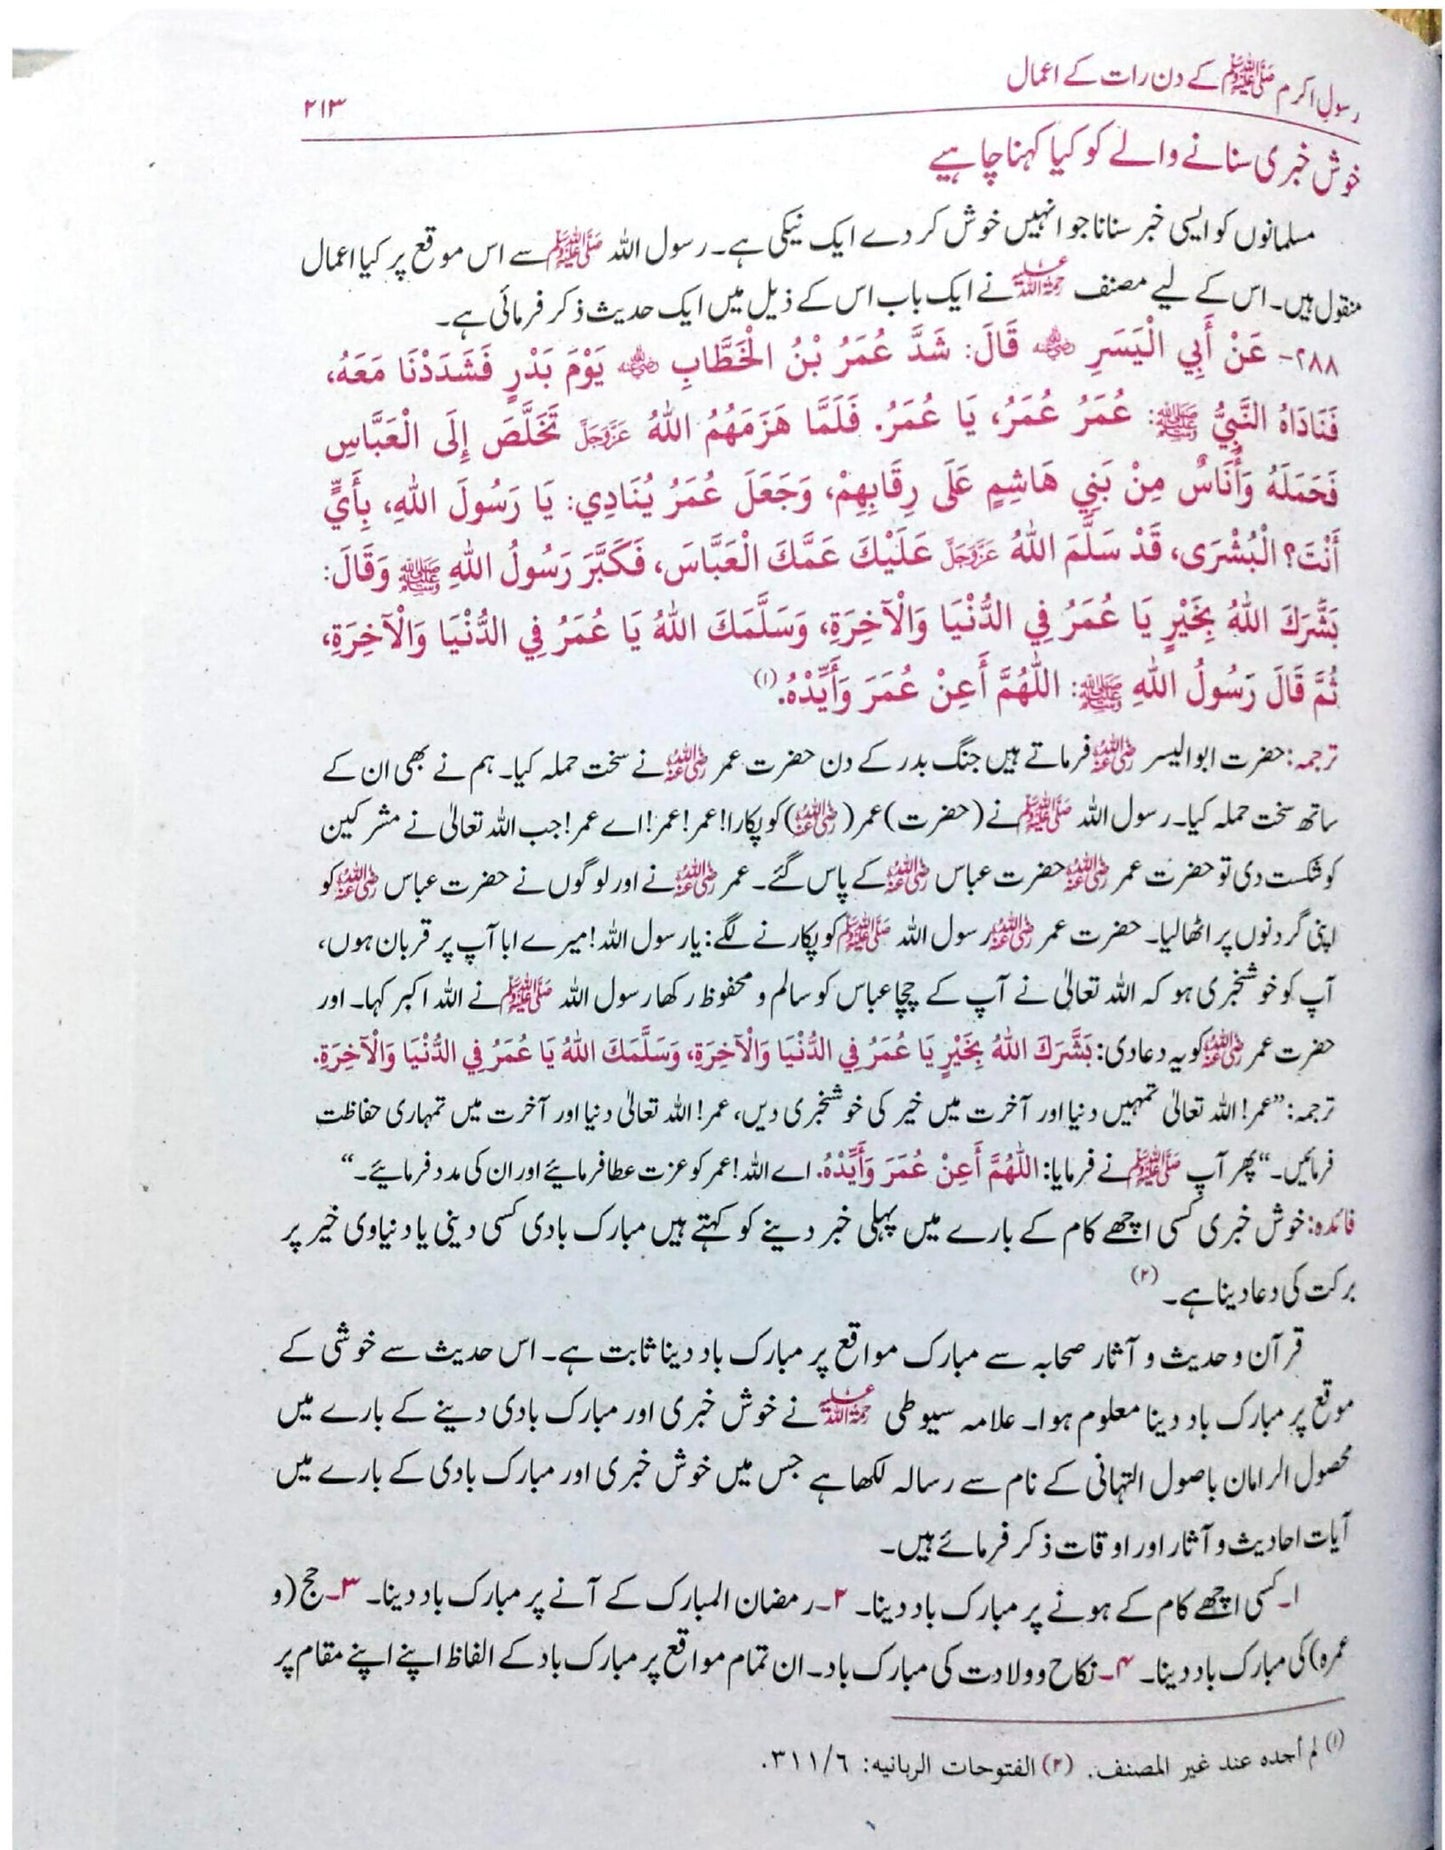 رسولِ اکرم ﷺ کے دن رات کے اعمال
۲۱۳
خوش خبری سنانے والے کو کیا کہنا چاہیے
مسلمانوں کو ایسی خبر سنانا جو انہیں خوش کر دے ایک نیکی ہے۔ رسول اللہ ﷺ سے اس موقع پر کیا اعمال
منقول ہیں۔ اس کے لیے مصنف رحمۃ اللہ علیہ نے ایک باب اس کے ذیل میں ایک حدیث ذکر فرمائی ہے۔
۲۸۸- عَنْ أَبِي الْيَسَرِ رضی اللہ عنہ قَالَ: شَدَّ عُمَرُ بْنُ الْخَطَّابِ رضی اللہ عنہ يَوْمَ بَدْرٍ فَشَدَدْنَا مَعَهُ،
فَنَادَاهُ النَّبِيُّ ﷺ: عُمَرُ عُمَرُ، يَا عُمَرُ. فَلَمَّا هَزَمَهُمُ اللهُ عَزَّوَجَلَّ تَخَلَّصَ إِلَى الْعَبَّاسِ
فَحَمَلَهُ وَأُنَاسٌ مِنْ بَنِي هَاشِمٍ عَلَى رِقَابِهِمْ، وَجَعَلَ عُمَرُ يُنَادِي: يَا رَسُولَ اللهِ، بِأَيِّ
أَنْتَ؟ الْبُشْرَى، قَدْ سَلَّمَ اللهُ عَزَّوَجَلَّ عَلَيْكَ عَمَّكَ الْعَبَّاسَ، فَكَبَّرَ رَسُولُ اللهِ ﷺ وَقَالَ:
بَشَّرَكَ اللهُ بِخَيْرٍ يَا عُمَرُ فِي الدُّنْيَا وَالْآخِرَةِ، وَسَلَّمَكَ اللهُ يَا عُمَرُ فِي الدُّنْيَا وَالْآخِرَةِ،
ثُمَّ قَالَ رَسُولُ اللهِ ﷺ: اللّٰهُمَّ أَعِنْ عُمَرَ وَأَيِّدْهُ.(۱)
ترجمہ: حضرت ابوالیسر رضی اللہ عنہ فرماتے ہیں جنگ بدر کے دن حضرت عمر رضی اللہ عنہ نے سخت حملہ کیا۔ ہم نے بھی ان کے
ساتھ سخت حملہ کیا۔ رسول اللہ ﷺ نے (حضرت) عمر (رضی اللہ عنہ) کو پکارا! عمر! عمر! اے عمر! جب اللہ تعالیٰ نے مشرکین
کو شکست دی تو حضرت عمر رضی اللہ عنہ حضرت عباس رضی اللہ عنہ کے پاس گئے۔ عمر رضی اللہ عنہ نے اور لوگوں نے حضرت عباس رضی اللہ عنہ کو
اپنی گردنوں پر اٹھالیا۔ حضرت عمر رضی اللہ عنہ رسول اللہ ﷺ کو پکارنے لگے: یا رسول اللہ! میرے ابا آپ پر قربان ہوں،
آپ کو خوشخبری ہو کہ اللہ تعالیٰ نے آپ کے چچا عباس کو سالم و محفوظ رکھا رسول اللہ ﷺ نے اللہ اکبر کہا۔ اور
حضرت عمر رضی اللہ عنہ کو یہ دعا دی: بَشَّرَكَ اللهُ بِخَيْرٍ يَا عُمَرُ فِي الدُّنْيَا وَالْآخِرَةِ، وَسَلَّمَكَ اللهُ يَا عُمَرُ فِي الدُّنْيَا وَالْآخِرَةِ.
ترجمہ: ”عمر! اللہ تعالیٰ تمہیں دنیا اور آخرت میں خیر کی خوشخبری دیں، عمر! اللہ تعالیٰ دنیا اور آخرت میں تمہاری حفاظت
فرمائیں۔“ پھر آپ ﷺ نے فرمایا: اللّٰهُمَّ أَعِنْ عُمَرَ وَأَيِّدْهُ. اے اللہ! عمر کو عزت عطا فرمائیے اور ان کی مدد فرمائیے۔“
فائدہ: خوش خبری کسی اچھے کام کے بارے میں پہلی خبر دینے کو کہتے ہیں مبارک بادی کسی دینی یا دنیاوی خیر پر
برکت کی دعا دینا ہے۔(۲)
قرآن و حدیث و آثار صحابہ سے مبارک مواقع پر مبارک باد دینا ثابت ہے۔ اس حدیث سے خوشی کے
موقع پر مبارک باد دینا معلوم ہوا۔ علامہ سیوطی رحمۃ اللہ علیہ نے خوش خبری اور مبارک بادی دینے کے بارے میں
محصول الرامان باصول التہانی کے نام سے رسالہ لکھا ہے جس میں خوش خبری اور مبارک بادی کے بارے میں
آیات احادیث و آثار اور اوقات ذکر فرمائے ہیں۔
۱۔ کسی اچھے کام کے ہونے پر مبارک باد دینا۔ ۲۔ رمضان المبارک کے آنے پر مبارک باد دینا۔ ۳۔ حج (و
عمرہ) کی مبارک باد دینا۔ ۴۔ نکاح و ولادت کی مبارک باد۔ ان تمام مواقع پر مبارک باد کے الفاظ اپنے اپنے مقام پر
(۱) لم أجده عند غير المصنف. (۲) الفتوحات الربانيه: ۳۱۱/۶.